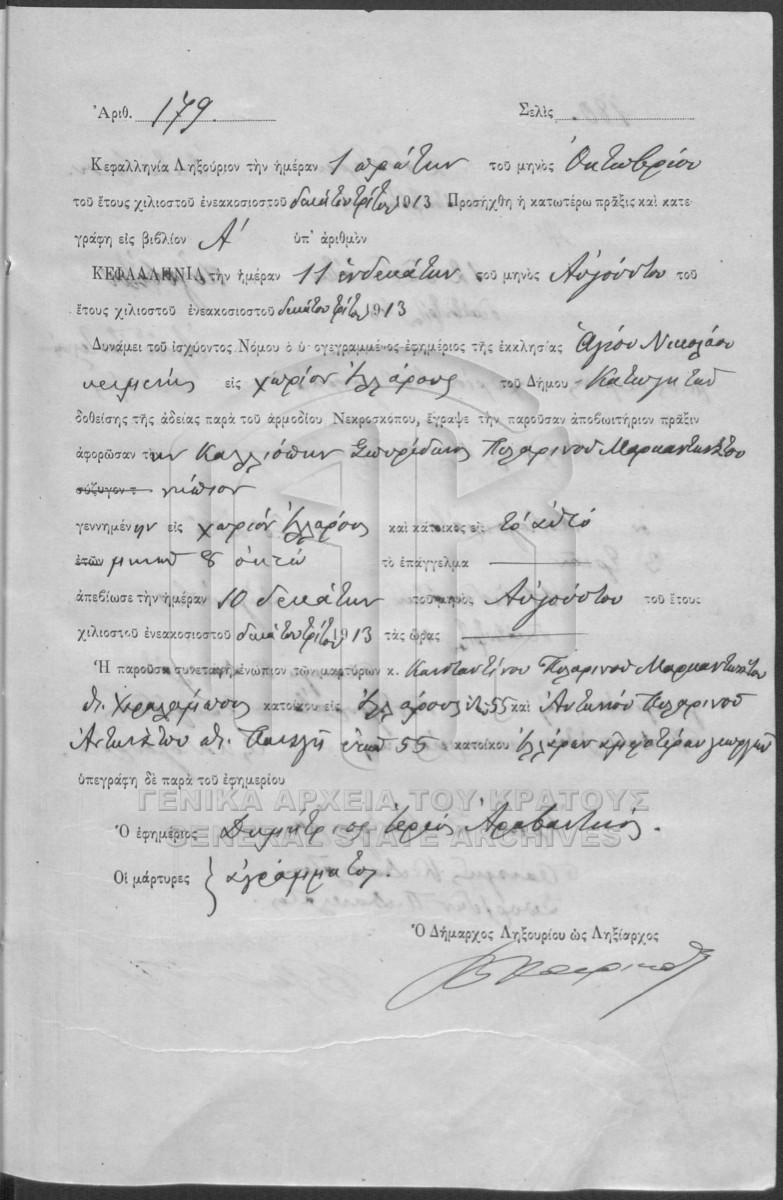 Ἀριθ. 179. Σελὶς
Κεφαλληνία Ληξούριον τὴν ἡμέραν 1 πρώτην τοῦ μηνὸς Ὀκτωβρίου
τοῦ ἔτους χιλιοστοῦ ἐνεακοσιοστοῦ δεκάτου τρίτου 1913 Προσήχθη ἡ κατωτέρω πρᾶξις καὶ κατε-
γράφη εἰς βιβλίον Α' ὑπ' ἀριθμὸν
ΚΕΦΑΛΛΗΝΙΑ τὴν ἡμέραν 11 ἑνδεκάτην τοῦ μηνὸς Αὐγούστου τοῦ
ἔτους χιλιοστοῦ ἐνεακοσιοστοῦ δεκάτου τρίτου 1913
Δυνάμει τοῦ ἰσχύοντος Νόμου ὁ ὑπογεγραμμένος ἐφημέριος τῆς ἐκκλησίας Ἁγίου Νικολάου
κειμένης εἰς χωρίον τοῦ Δήμου
δοθείσης τῆς ἀδείας παρὰ τοῦ ἁρμοδίου Νεκροσκόπου, ἔγραψε τὴν παροῦσαν ἀποβιωτήριον πρᾶξιν
ἀφορῶσαν τὴν Καλλιόπην Σπυρίδωνος Πυλαρινοῦ Μαρκαντωνάτου
σύζυγον τ νήπιον
γεννημένην εἰς χωρίον καὶ κάτοικος εἰς τὸ αὐτό
ἐτῶν μηνῶν 8 ὀκτώ τὸ ἐπάγγελμα
ἀπεβίωσε τὴν ἡμέραν 10 δεκάτην τοῦ μηνὸς Αὐγούστου τοῦ ἔτους
χιλιοστοῦ ἐνεακοσιοστοῦ δεκάτου τρίτου 1913 τὰς ὥρας
Ἡ παροῦσα συνετάγη ἐνώπιον τῶν μαρτύρων κ. Κωνσταντίνου Πυλαρινοῦ Μαρκαντωνάτου
Χαραλάμπους κατοίκου εἰς 55 καὶ Ἀντωνίου Πυλαρινοῦ
ἐτῶν 55 κατοίκου
ὑπεγράφη δὲ παρὰ τοῦ ἐφημερίου
ΓΕΝΙΚΑ ΑΡΧΕΙΑ ΤΟΥ ΚΡΑΤΟΥΣ
Ὁ ἐφημέριος Δημήτριος ἱερεύς Ἀραβαντινός.
GENERAL STATE ARCHIVES
Οἱ μάρτυρες ἀγράμματοι.
Ὁ Δήμαρχος Ληξουρίου ὡς Ληξίαρχος